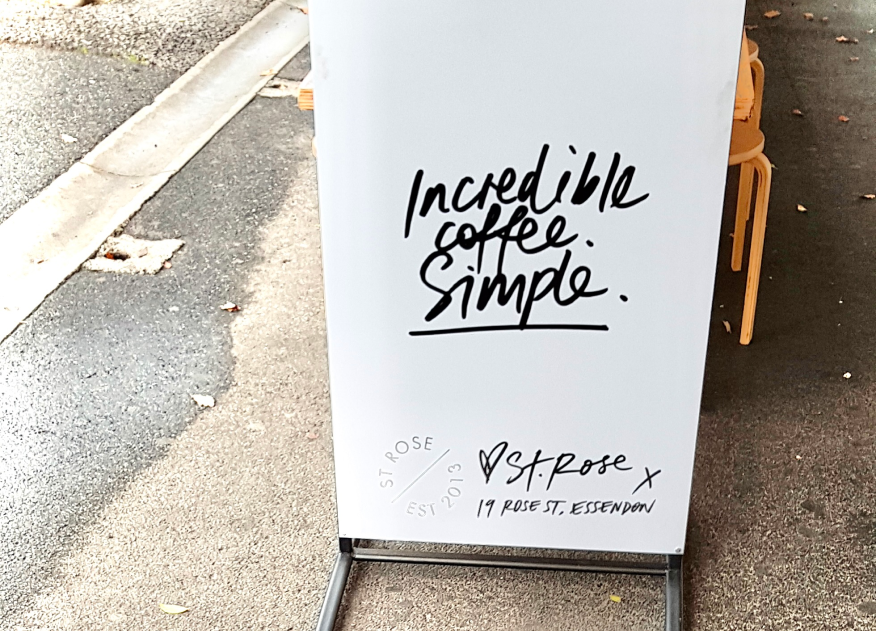 Incredible
coffee.
Simple.
ST ROSE
EST 2013
St. Rose x
19 ROSE ST, ESSENDON